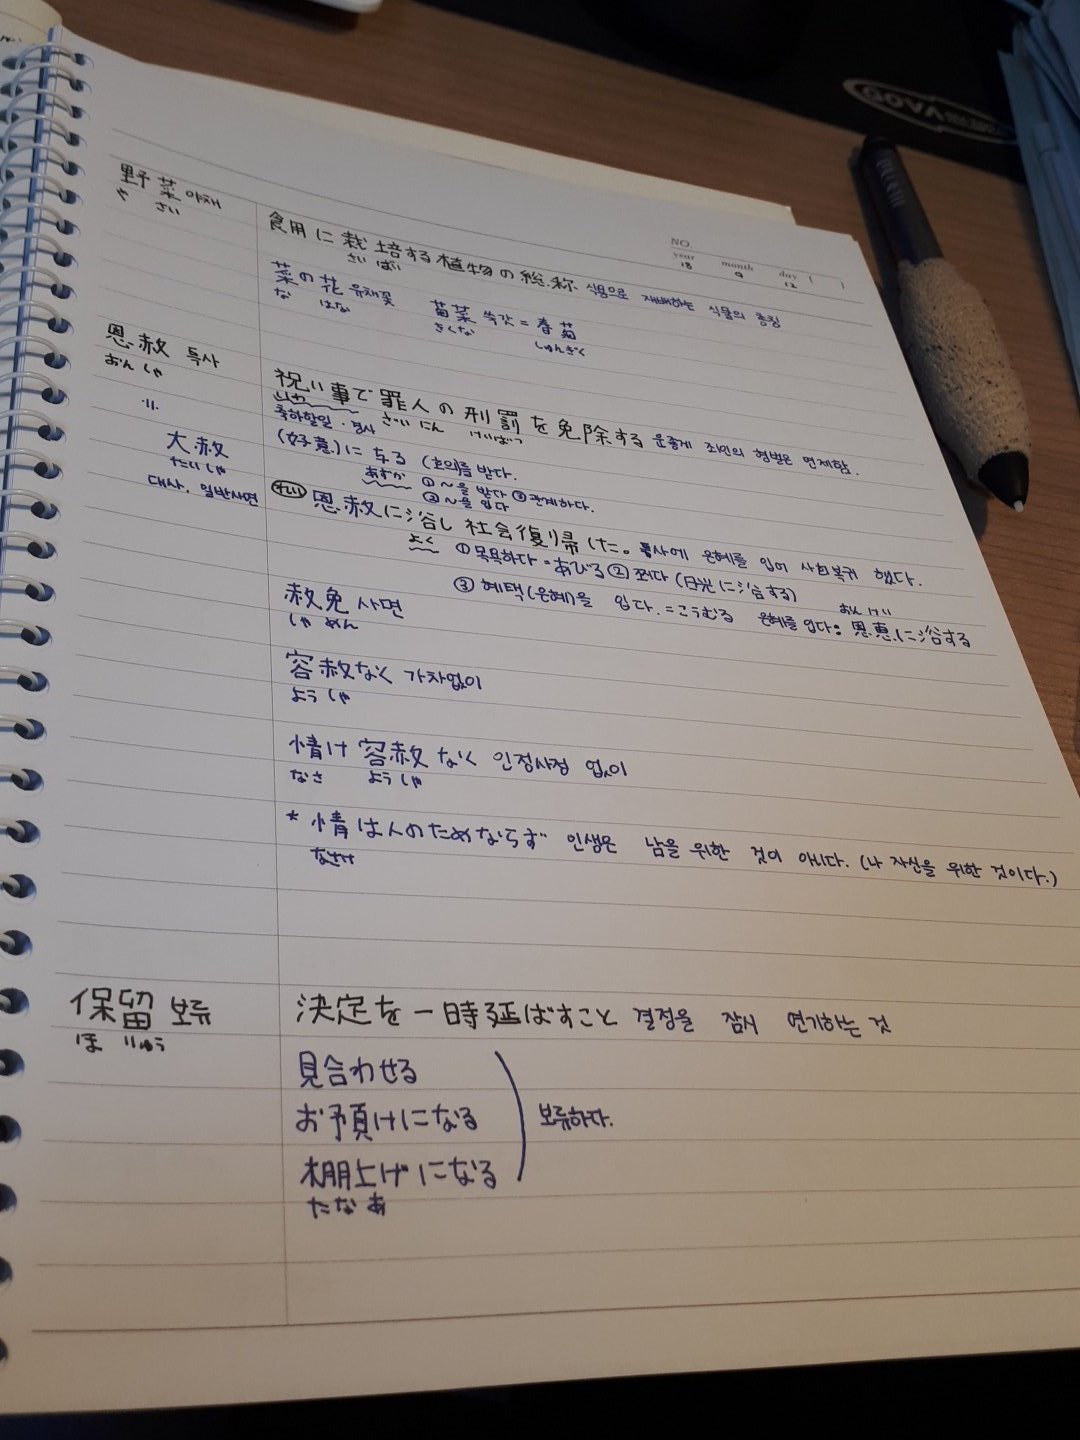 GOVA
NO.
year month day ( )
18 9 12
野菜 야채
や さい
食用に栽培する植物の総称 식용으로 재배하는 식물의 총칭
さい ばい
菜の花 유채꽃 菊菜 쑥갓 = 春菊
な はな きくな しゅんぎく
恩赦 특사
おん しゃ
祝い事で罪人の刑罰を免除する 운좋게 죄인의 형벌은 면제함.
いわ ざい にん けいばつ
축하할일·경사
〃
大赦
たい しゃ
대사. 일반사면
(好意)に与る (호의를 받다.
あずか ① ~을 받다 ③ 관계하다.
② ~을 입다
れい 恩赦に浴し社会復帰した。 특사에 은혜를 입어 사회복귀 했다.
よく ① 목욕하다 = あびる ② 쬐다 (日光に浴する)
③ 혜택(은혜)을 입다. = こうむる 은혜를 입다: 恩恵に浴する
おん けい
赦免 사면
しゃ めん
容赦なく 가차없이
よう しゃ
情け容赦なく 인정사정 없이
なさ よう しゃ
* 情は人のためならず 인생은 남을 위한 것이 아니다. (나 자신을 위한 것이다.)
なさけ
保留 보류
ほ りゅう
決定を一時延ばすこと 결정을 잠시 연기하는 것
見合わせる
お預けになる 보류하다.
棚上げになる
たな あ